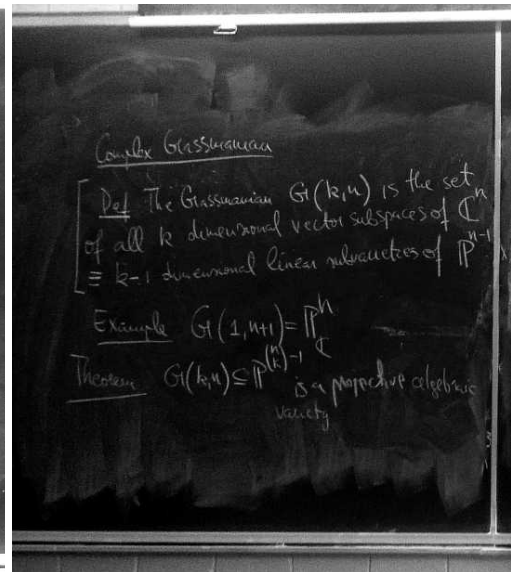 Complex Grassmanian
Def The Grassmanian G(k,n) is the set
of all k dimensional vector subspaces of ℂ^n
≡ k-1 dimensional linear subvarieties of ℙ^{n-1}
Example G(1,n+1) = ℙ^n_ℂ
Theorem G(k,n) ⊆ ℙ^{\binom{n}{k}-1} is a projective algebraic
variety